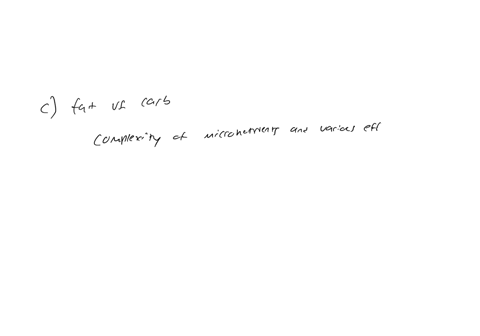 c) fat vs carb
Complexity of micronutrients and various eff